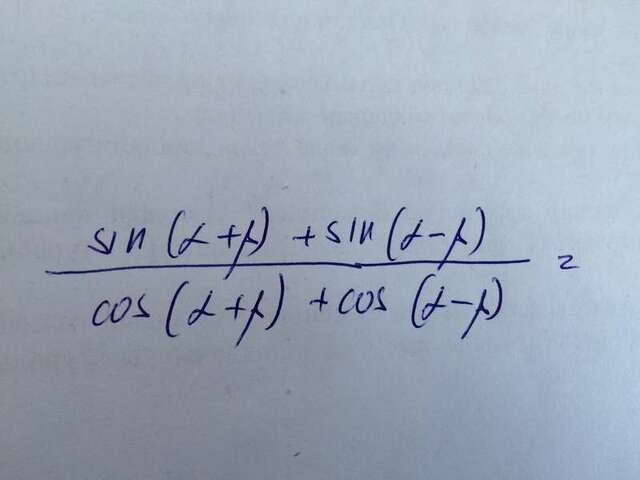 sin (α+β) + sin (α-β)
cos (α+β) + cos (α-β) =